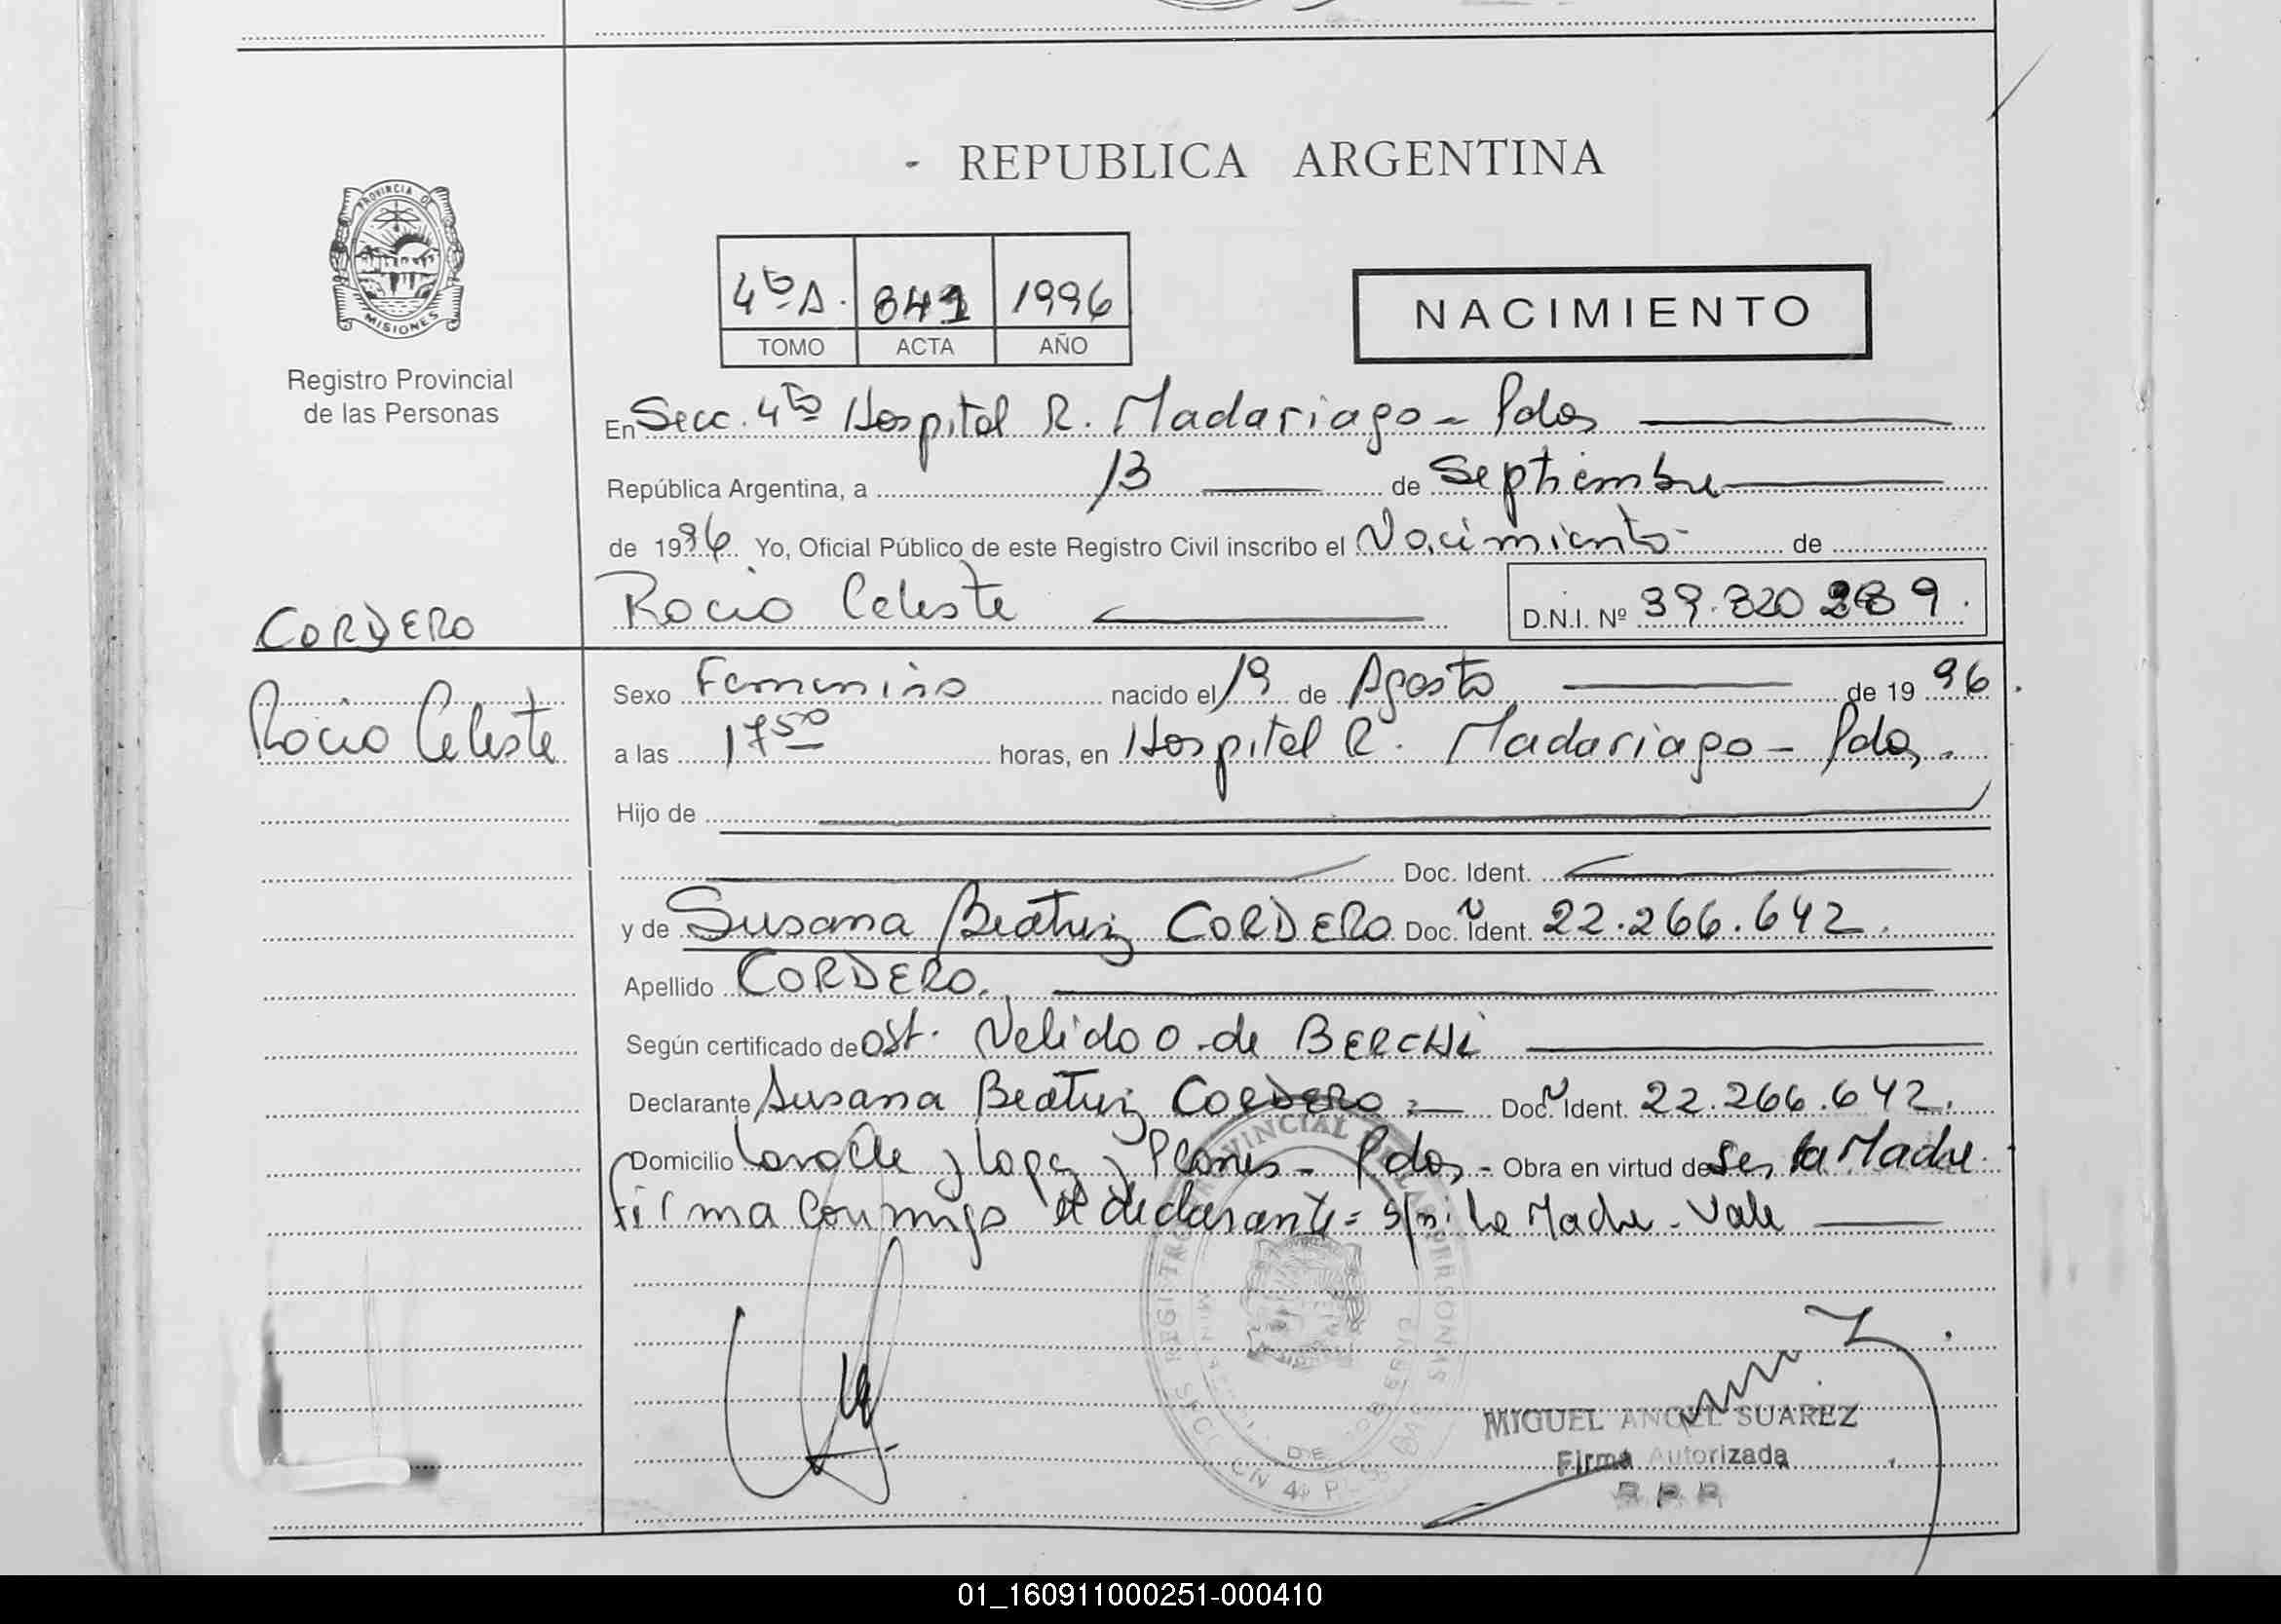 - REPUBLICA ARGENTINA
PROVINCIA DE
MISIONES
Registro Provincial
de las Personas
4ta A. 841 1996
TOMO ACTA AÑO
NACIMIENTO
En Secc. 4ta Hospital R. Madariaga - Pdas
República Argentina, a 13 de Septiembre
de 1996 Yo, Oficial Público de este Registro Civil inscribo el Nacimiento de
CORDERO
Rocio Celeste
Rocio Celeste D.N.I. Nº
Sexo Femenino nacido el 19 de Agosto de 19 96.
a las 17 50 horas, en Hospital R. Madariaga - Pdas.
Hijo de
Doc. Ident.
y de Susana Beatriz CORDERO Doc. Ident. 22.266.642.
Apellido CORDERO.
Según certificado de Obst. Nelida O. de BERCHI
Declarante Susana Beatriz CORDERO Doc. Ident. 22.266.642.
Domicilio Lavalle y Lopez y Planes - Pdas - Obra en virtud de Ser la Madre.
firma conmigo el declarante = S/r: la Madre - Vale
REGISTRO PROVINCIAL DE LAS PERSONAS
MIGUEL ANGEL SUAREZ
Firma Autorizada
01_160911000251-000410